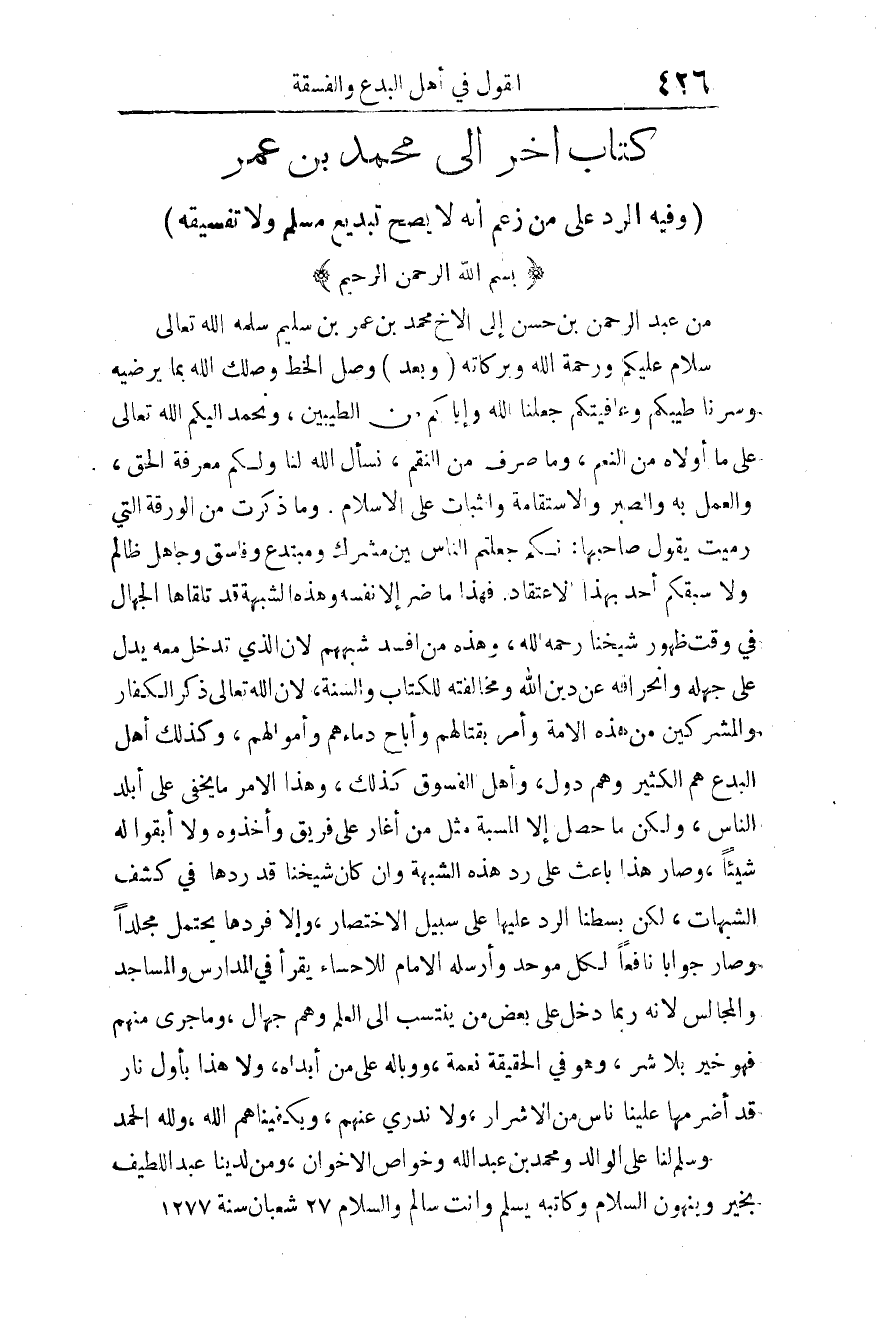 ٤٢٦ القول في أهل البدع والفسقة
كتاب آخر الى محمد بن عمر
( وفيه الرد على من زعم أنه لا يصح تبديع مسلم ولا تفسيقه )
﴿ بسم الله الرحمن الرحيم ﴾
من عبد الرحمن بن حسن إلى الاخ محمد بن عمر بن سليم سلمه الله تعالى
سلام عليكم ورحمة الله وبركاته ( وبعد ) وصل الخط وصلك الله بما يرضيه
وسرنا طيبكم وعافيتكم جعلنا الله وإياكم من الطيبين ، ونحمد اليكم الله تعالى
على ما أولاه من النعم ، وما صرف من النقم ، نسأل الله لنا ولكم معرفة الحق ،
والعمل به والصبر والاستقامة والثبات على الاسلام . وما ذكرت من الورقة التي
رميت يقول صاحبها : نكم جعلتم الناس بين مشرك ومبتدع وفاسق وجاهل ظالم
ولا سبقكم أحد بهذا الاعتقاد. فهذا ما ضر إلا نفسه وهذه الشبهة قد تلقاها الجهال
في وقت ظهور شيخنا رحمه الله ، وهذه من افسد شبههم لان الذي تدخل معه يدل
على جهله وانحرافه عن دين الله ومخالفته للكتاب والسنة، لان الله تعالى ذكر الكفار
والمشركين من هذه الامة وأمر بقتالهم وأباح دماءهم وأموالهم ، وكذلك أهل
البدع هم الكثير وهم دول، وأهل الفسوق كذلك ، وهذا الامر ما يخفى على أبلد
الناس ، ولكن ما حصل إلا المسبة مثل من أغار على فريق وأخذوه ولا أبقوا له
شيئاً ، وصار هذا باعث على رد هذه الشبهة وان كان شيخنا قد ردها في كشف
الشبهات ، لكن بسطنا الرد عليها على سبيل الاختصار ، وإلا فردها يحتمل مجلداً
وصار جوابا نافعاً لكل موحد وأرسله الامام للاحساء يقرأ في المدارس والمساجد
والمجالس لانه ربما دخل على بعض من ينتسب الى العلم وهم جهال ، وما جرى منهم
فهو خير بلا شر ، وهو في الحقيقة نعمة ، ووباله على من أبداه، ولا هذا بأول نار
قد أضرمها علينا ناس من الاشرار ، ولا ندري عنهم ، ويكفيناهم الله ، ولله الحمد
وسلم لنا على الوالد ومحمد بن عبد الله وخواص الاخوان ، ومن لدينا عبد اللطيف
بخير وينهون السلام وكاتبه يسلم وانت سالم والسلام ٢٧ شعبان سنة ١٢٧٧